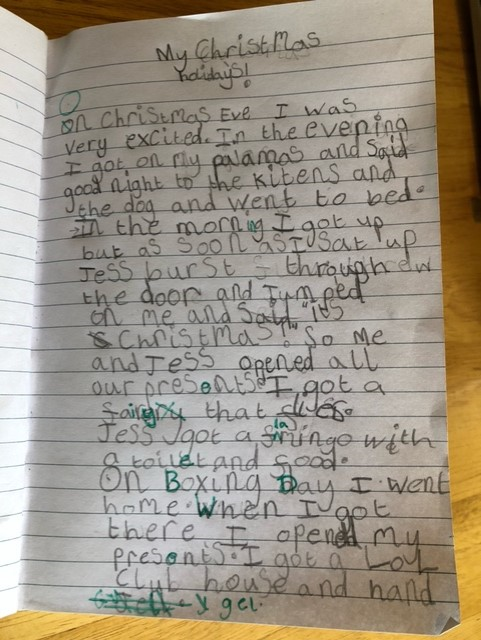 My Christmas
holidays!
On Christmas Eve I was
very excited. In the evening
I got on my pajamas and said
good night to the kitens and
the dog and went to bed.
In the morning I got up
but as soon as I sat up
Jess burst through
the door and Jumped
on me and said "it's
Christmas". So me
and Jess opened all
our presents. I got a
that
Jess got a flamingo with
a toilet and food.
On Boxing Day I went
home. When I got
there I opened my
presents. I got a LoL
Club house and hand
gel.